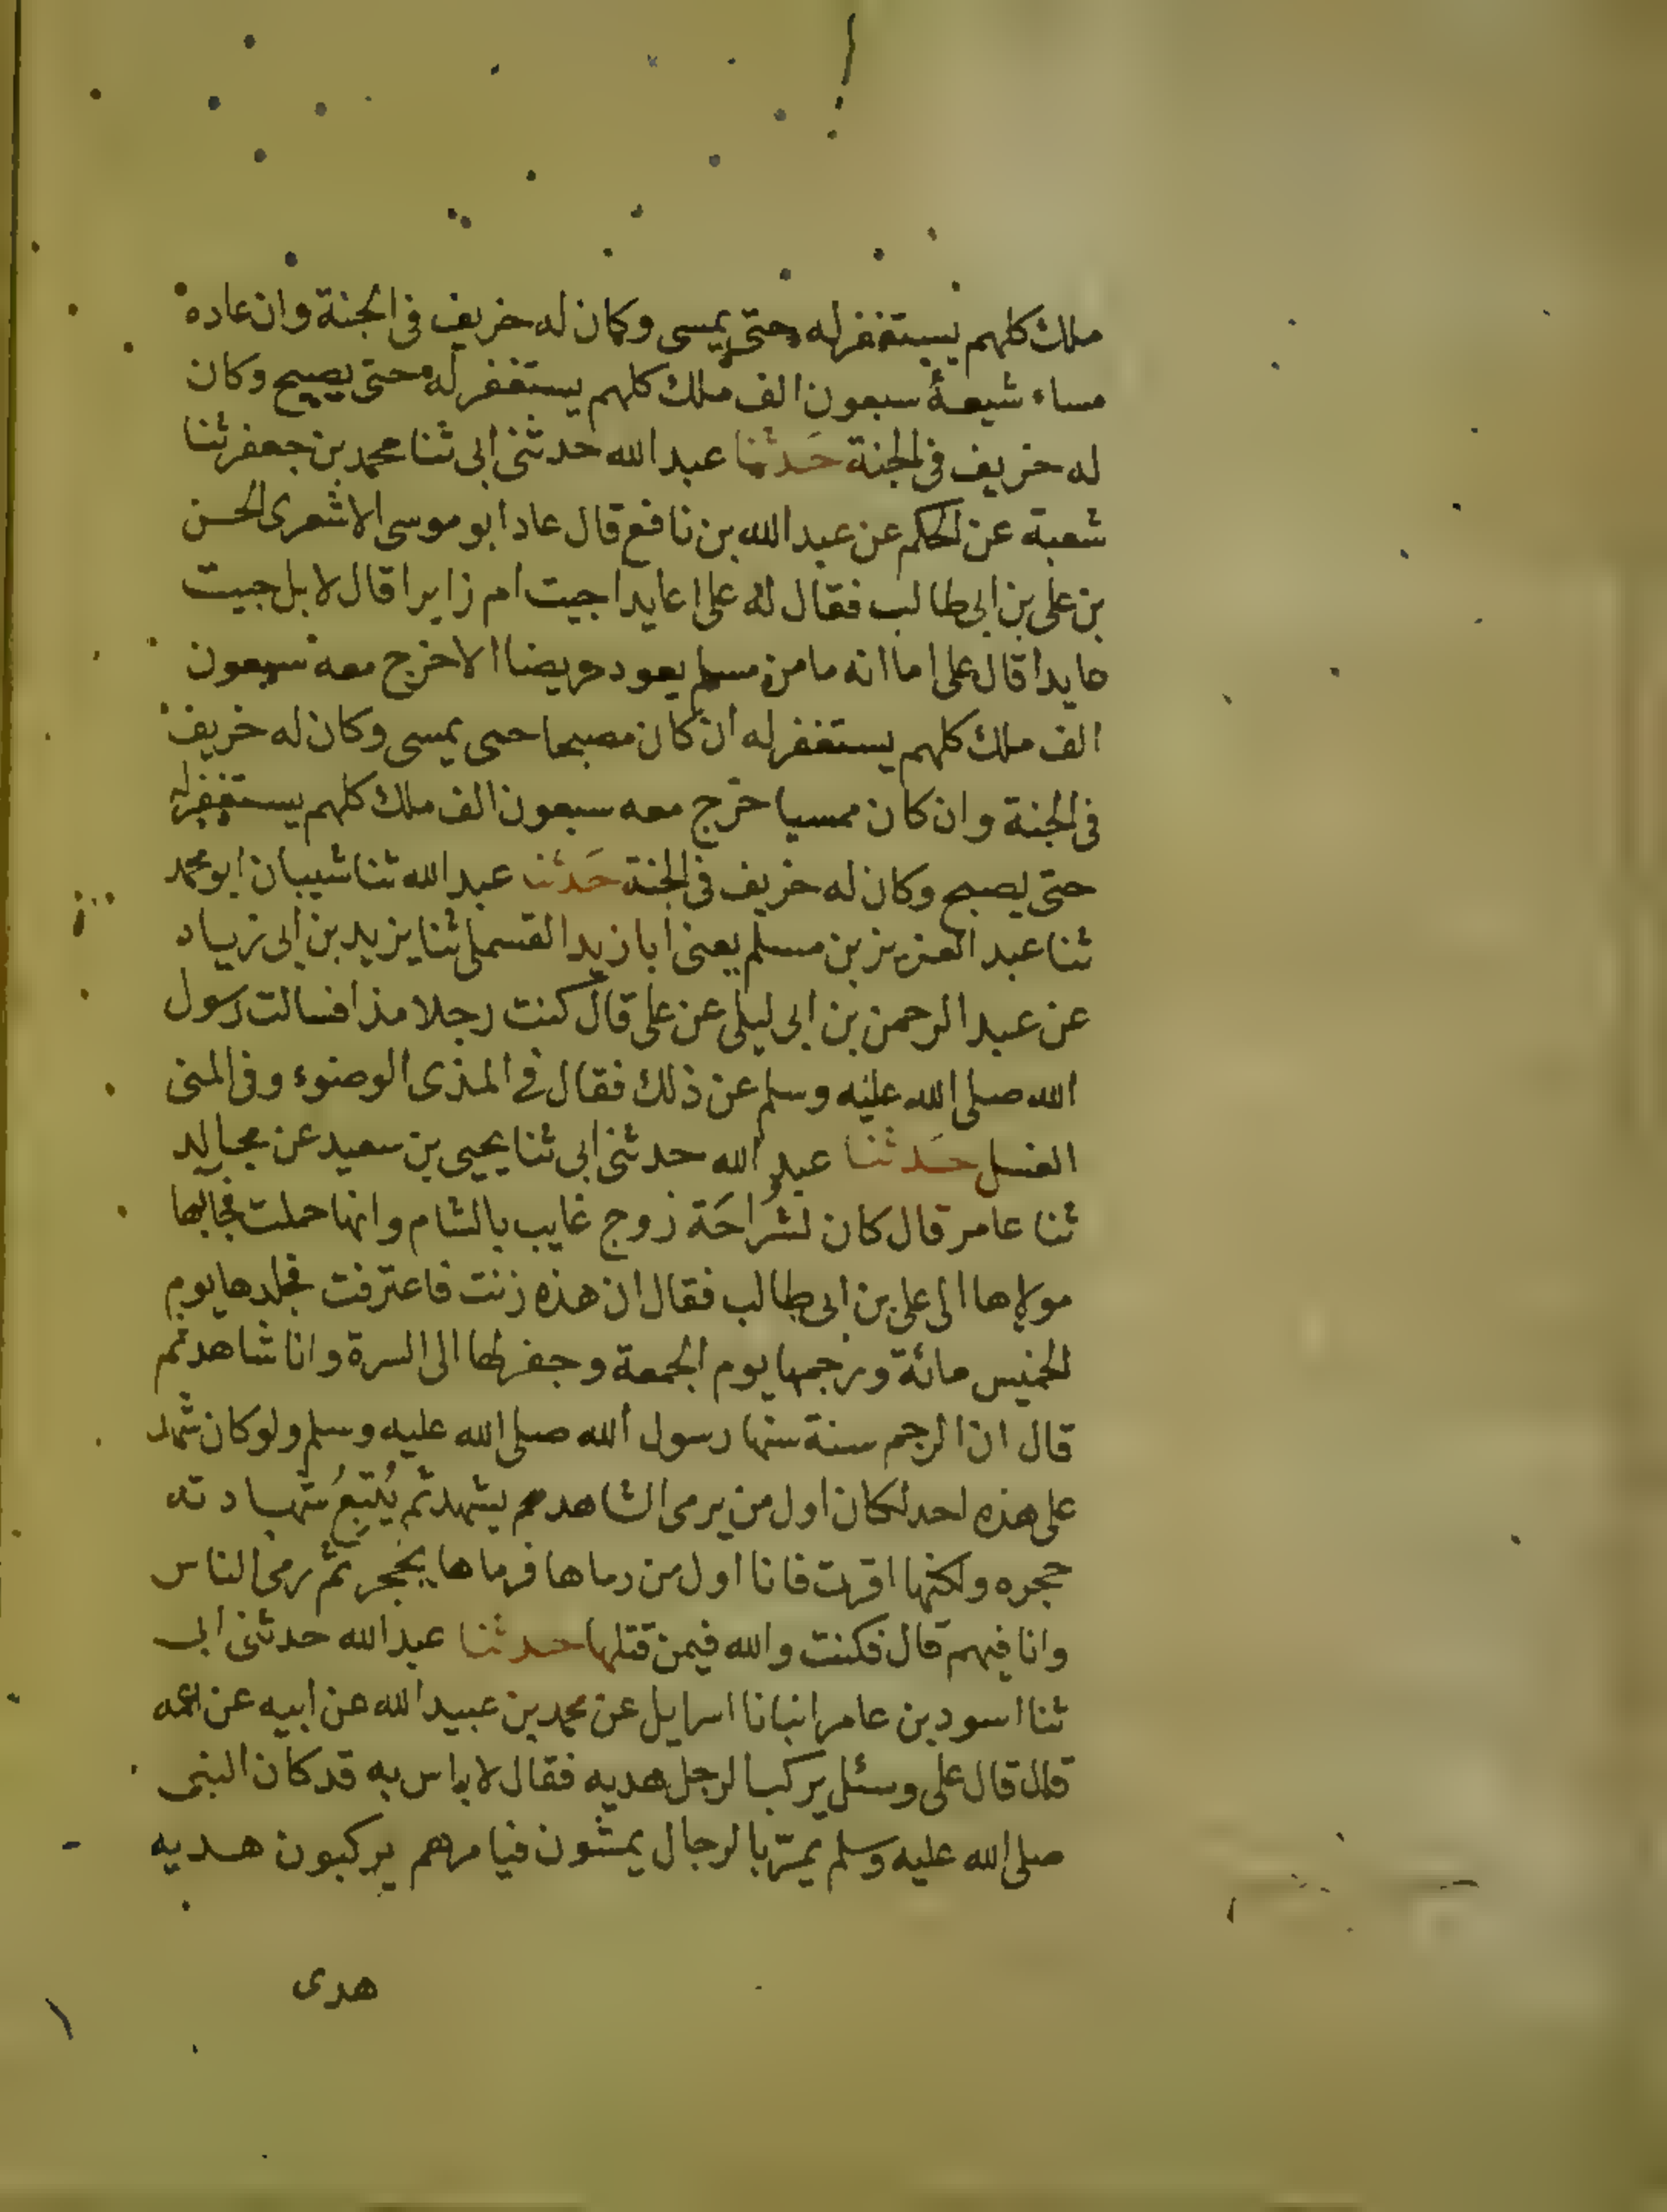 ملك كلهم يستغفر له حتى يمسى وكان له خريف فى الجنة وان عاده
مساء شيعهٔ سبعون الف ملك كلهم يستغفر له حتى يصبح وكان
له خريف فى الجنة حَدثنا عبد الله حدثنى ابى ثنا محمد بن جعفر ثنا
شعبة عن الحكم عن عبد الله بن نافع قال عاد ابو موسى الاشعرى الحسن
بن على بن ابى طالب فقال له على اعايدا جيت ام زايرا قال لا بل جيت
عايدا قال على اما انه ما من مسلم يعود مريضا الا خرج معه سبعون
الف ملك كلهم يستغفر له ان كان مصبحا حتى يمسى وكان له خريف
فى الجنة وان كان ممسيا خرج معه سبعون الف ملك كلهم يستغفر له
حتى يصبح وكان له خريف فى الجنة حَدثنا عبد الله ثنا شيبان ابو محمد
ثنا عبد العزيز بن مسلم يعنى ابا زيد القسملى ثنا يزيد بن ابى زياد
عن عبد الرحمن بن ابى ليلى عن على قال كنت رجلا مذا فسالت رسول
الله صلى الله عليه وسلم عن ذلك فقال فى المذى الوضوء وفى المنى
الغسل حَدثنا عبد الله حدثنى ابى ثنا يحيى بن سعيد عن مجالد
ثنا عامر قال كان لشُرَاحَة زوج غايب بالشام وانها حملت فجا بها
مولاها الى على بن ابى طالب فقال ان هذه زنت فاعترفت فجلدها يوم
الخميس مائة ورجمها يوم الجمعة وحفر لها الى السرة وانا شاهد ثم
قال ان الرجم سنة سنها رسول الله صلى الله عليه وسلم ولو كان شهد
على هذه احد لكان اول من يرمى الشاهد يشهد ثم يُتبِعُ شهادته
حجره ولكنها اقرت فانا اول من رماها فرماها بحجر ثم رمى الناس
وانا فيهم قال فكنت والله فيمن قتلها حدثنا عبد الله حدثنى ابى
ثنا اسود بن عامر انبانا اسرايل عن محمد بن عبيد الله عن ابيه عن عمه
قال قال على وسئل يركب الرجل هديه فقال لا باس به قد كان النبى
صلى الله عليه وسلم يمرّ بالرجال يمشون فيامرهم يركبون هديه
هدى